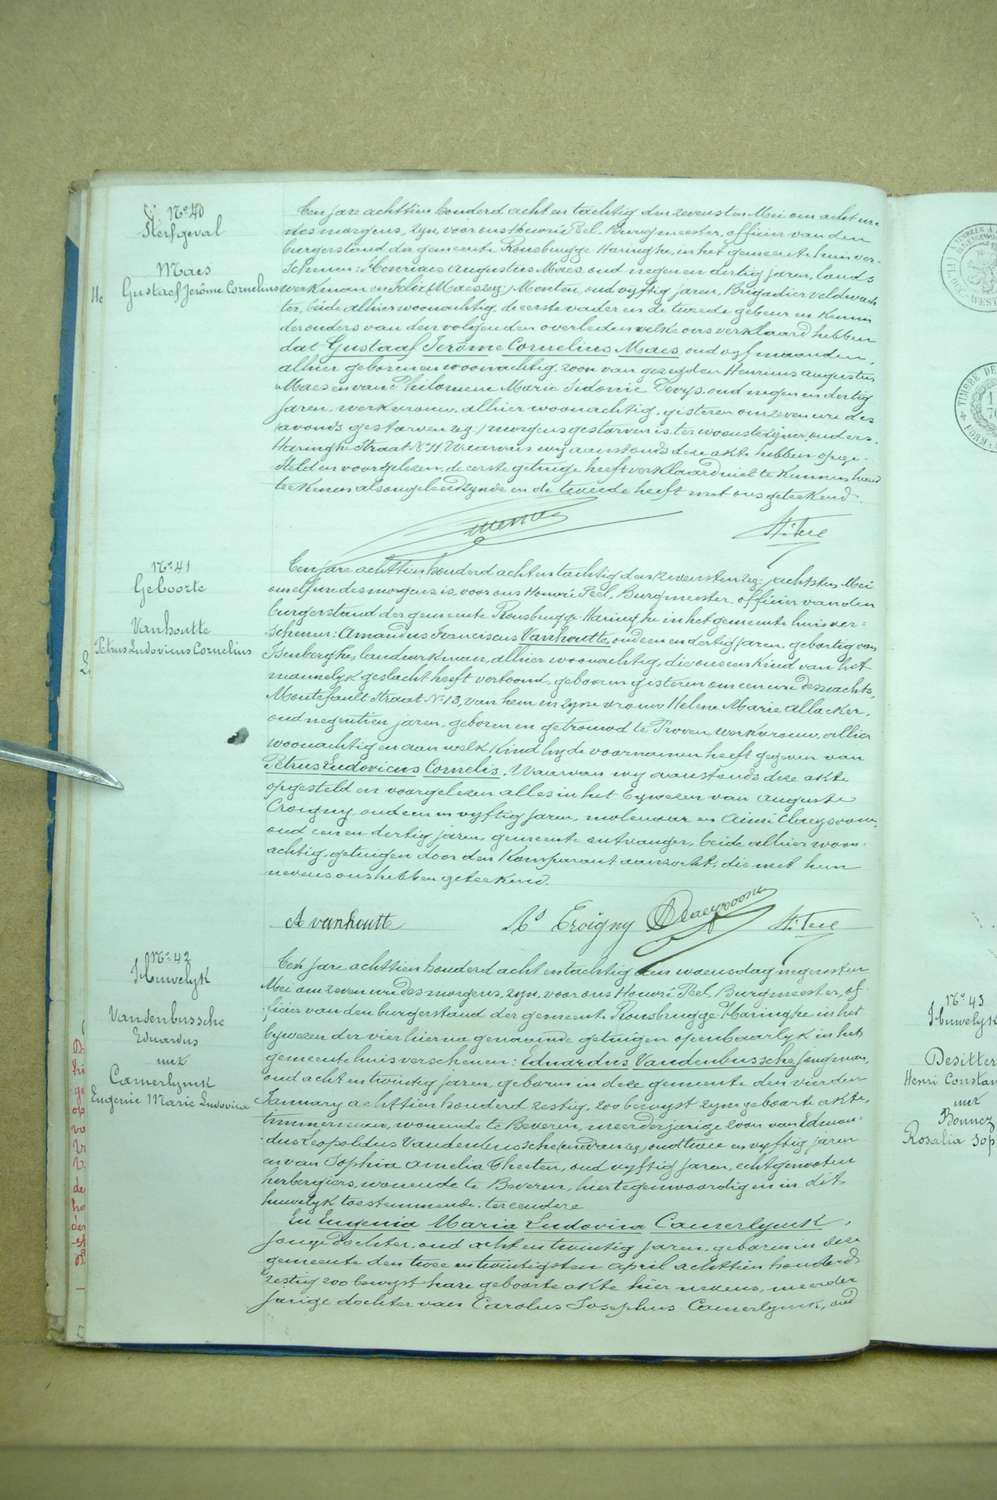 N° 40
Sterfgeval
Maes
Gustaaf Jerôme Cornelius
Een jare achttien honderd acht en tachtig den zevensten Mei om acht ure
des morgens, zijn, voor ons Honoré Peel, Burgmeester, officier van den
burgerstand der gemeente Rousbrugge Haringhe, in het gemeente huis ver-
schenen: Henricus Augustus Maes, oud negen en dertig jaren, land
werkman en Monteu, oud vyftig jaren, Brigadier veldwach
ter, beide alhier woonachtig, de eerste vader en de tweede gebeur en kennis
der ouders van den volgenden overledenen welke ons verklaard hebben
dat Gustaaf Jerôme Cornelius Maes, oud vyf maanden,
alhier geboren en woonachtig, zoon van gezegden Henricus Augustus
Maes en van Philomene Marie Ludovic oud negen en dertig
jaren, werkvrouw, alhier woonachtig, gisteren om zeven ure des
avonds gestorven zeg: morgens gestorven is, ter woonste zijner ouders.
Haringhe Straat N° 11. Waarvan wij aanstonds deze akte hebben opge-
steld en voorgelezen, de eerste getuige heeft verklaard niet te kunnen
teekenen als ongeleerd zynde en de tweede heeft met ons geteekend.
H. Peel
N° 41
Geboorte
Vanhoutte
Petrus Ludovicus Cornelius
Een jare achttien honderd acht en tachtig den zevensten zeg: achtsten Mei
om elf ure des morgens is, voor ons Honoré Peel, Burgmeester, officier van den
burgerstand der gemeente Rousbrugge Haringhe in het gemeente huis ver-
schenen: Amandus Franciscus Vanhoutte, oud een en dertig jaren, geboortig van
Isenberghe, landwerkman, alhier woonachtig, die ons een kind van het
mannelyk geslacht heeft vertoond, geboren gisteren om een ure des nachts,
Montefault Straat N° 13, van hem en zyne vrouw Helene Marie Allacker,
oud negentien jaren, geboren en getrouwd te Proven werkvrouw, alhier
woonachtig en aan welk kind hy de voornamen heeft gegeven van
Petrus Ludovicus Cornelis. Waarvan wy aanstonds deze akte
opgesteld en voorgelezen alles in het bywezen van Auguste
Croigny, oud een en vyftig jaren, molenaar en Aimé Claeysoone,
oud een en dertig jaren, gemeente ontvanger, beide alhier woon-
achtig, getuigen door den komparant aanzocht, die met hem
nevens ons hebben geteekend.
A vanhoutt
As Croigny
Claeysoone
H. Peel
N° 42
Huwelyk
Vandenbussche
Eduardus
met
Camerlynck
Eugenie Marie Ludovica
Een jare achttien honderd acht en tachtig den woensdag negensten
Mei om zeven ure des morgens, zyn, voor ons Honoré Peel, Burgmeester, of-
ficier van den burgerstand der gemeente Rousbrugge Haringhe in het
bywezen der vier hierna genoemde getuigen openbaarlyk in het
gemeente huis verschenen: Eduardus Vandenbussche, jongman,
oud acht en twintig jaren, geboren in deze gemeente den vierden
January achttien honderd zestig, zoo bewyst zyne geboorte akte,
timmerman, wonende te Beveren, meerderjarige zoon van Edmon-
dus Leopoldus Vandenbussche oud twee en vyftig jaren
en van Sophia Amelia Cherten, oud vyftig jaren, echtgenooten
herbergiers, wonende te Beveren, hiertegenwoordig en in dit
huwelyk toestemmende, ter eendere
En Eugenia Maria Ludovica Camerlynck,
jonge dochter, oud acht en twintig jaren, geboren in deze
gemeente den twee en twintigsten april achttien honderd
zestig zoo bewyst hare geboorte akte hier nevens, meerder
jarige dochter van Carolus Josephus Camerlynck, oud
N° 43
Huwelyk
Desitter
Henri Constan
met
Bonnez
Rosalia Sop